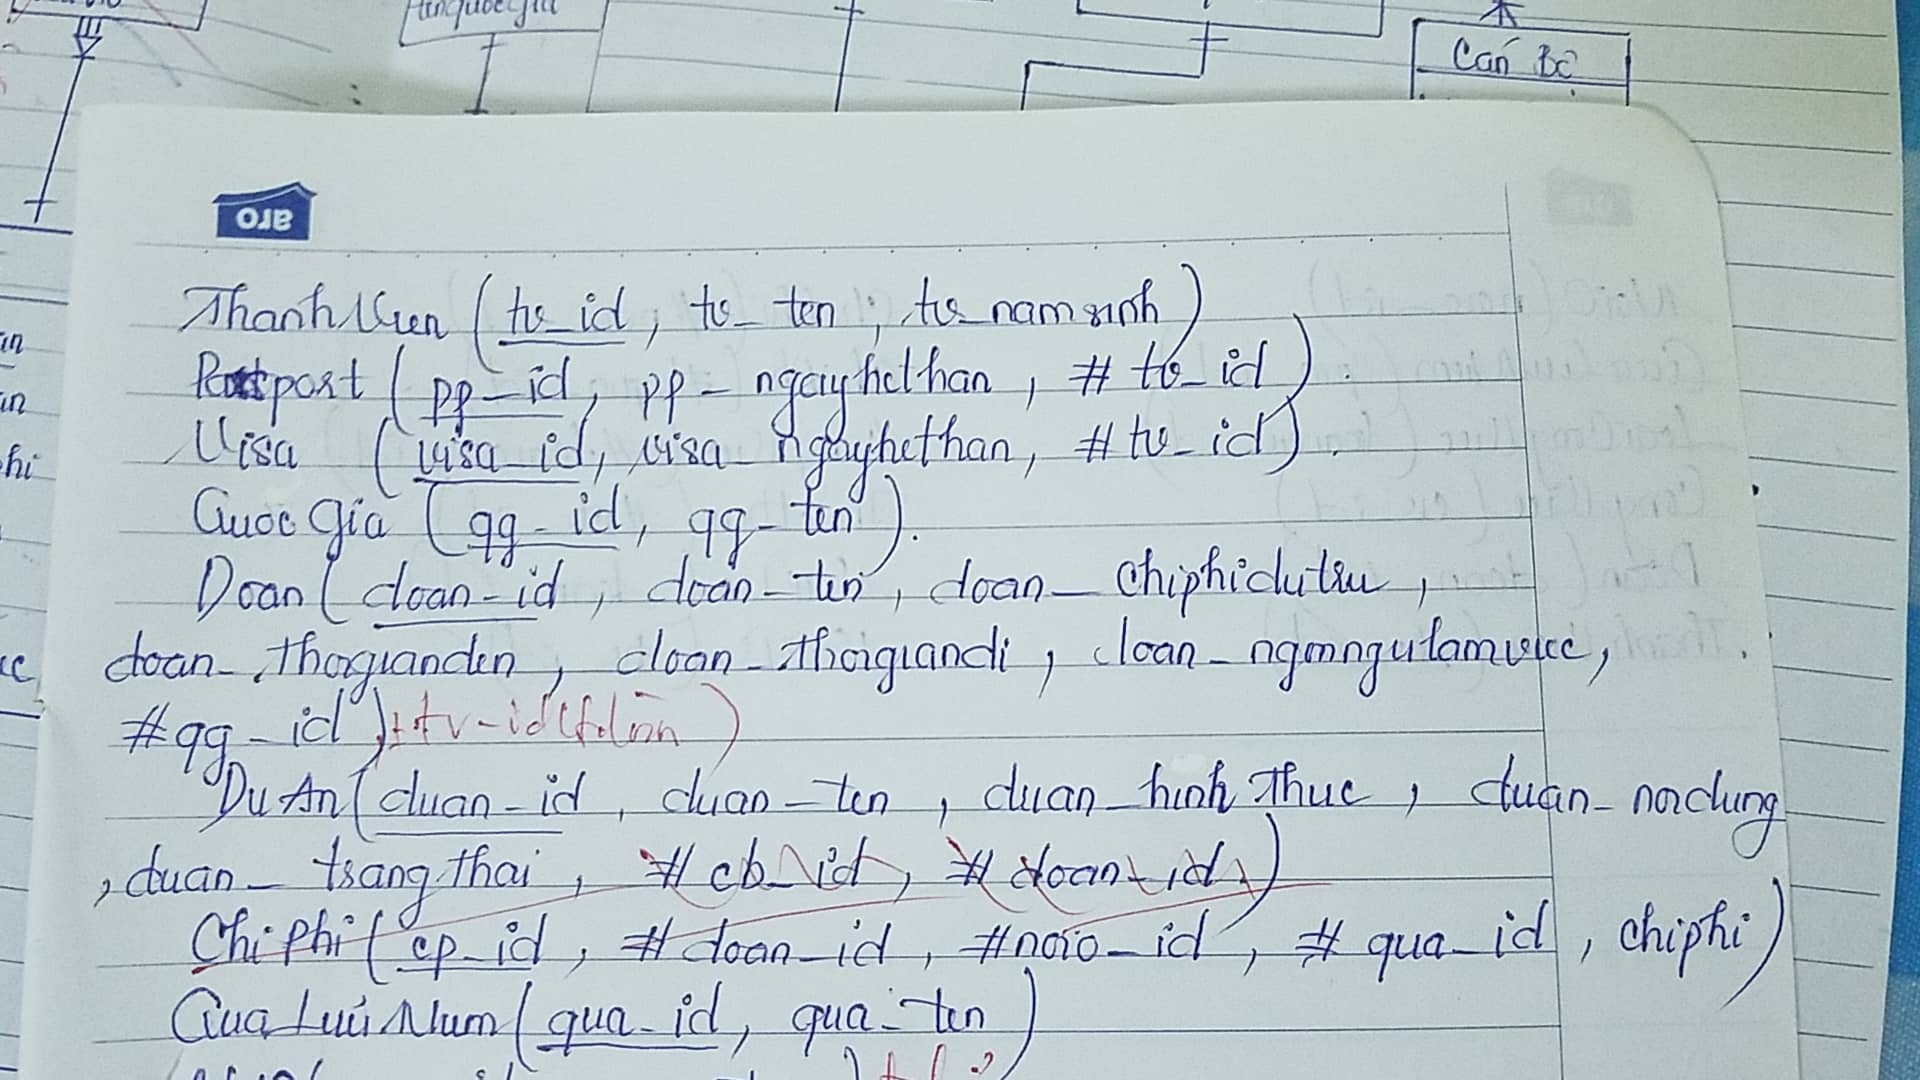 Cán Bộ
aro
ThanhVien (tv_id, tv_ten, tv_namsinh)
Passport (pp_id, pp_ngayhethan, #tv_id).
Visa (visa_id, visa_ngayhethan, #tv_id).
QuocGia (qg_id, qg_ten).
Doan (doan_id, doan_ten, doan_chiphidutru,
doan_thoigianden, doan_thoigiandi, doan_ngonngulamviec,
#qg_id)
DuAn (duan_id, duan_ten, duan_hinhThuc, duan_noidung
, duan_trangthai, #cb_id, #doan_id)
ChiPhi (cp_id, #doan_id, #noio_id, #qua_id, chiphi)
QuaLuuNiem (qua_id, qua_ten)